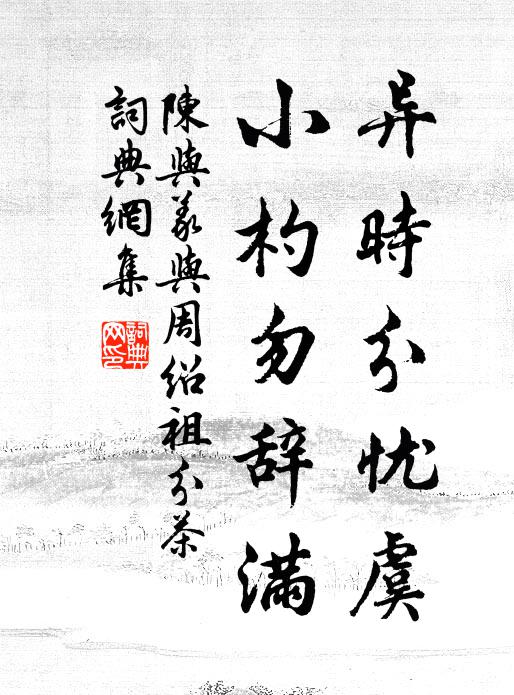 异時分忧虞
小杓勿辞滿
陳與義與周紹祖分茶
詞典網集
詞典网印